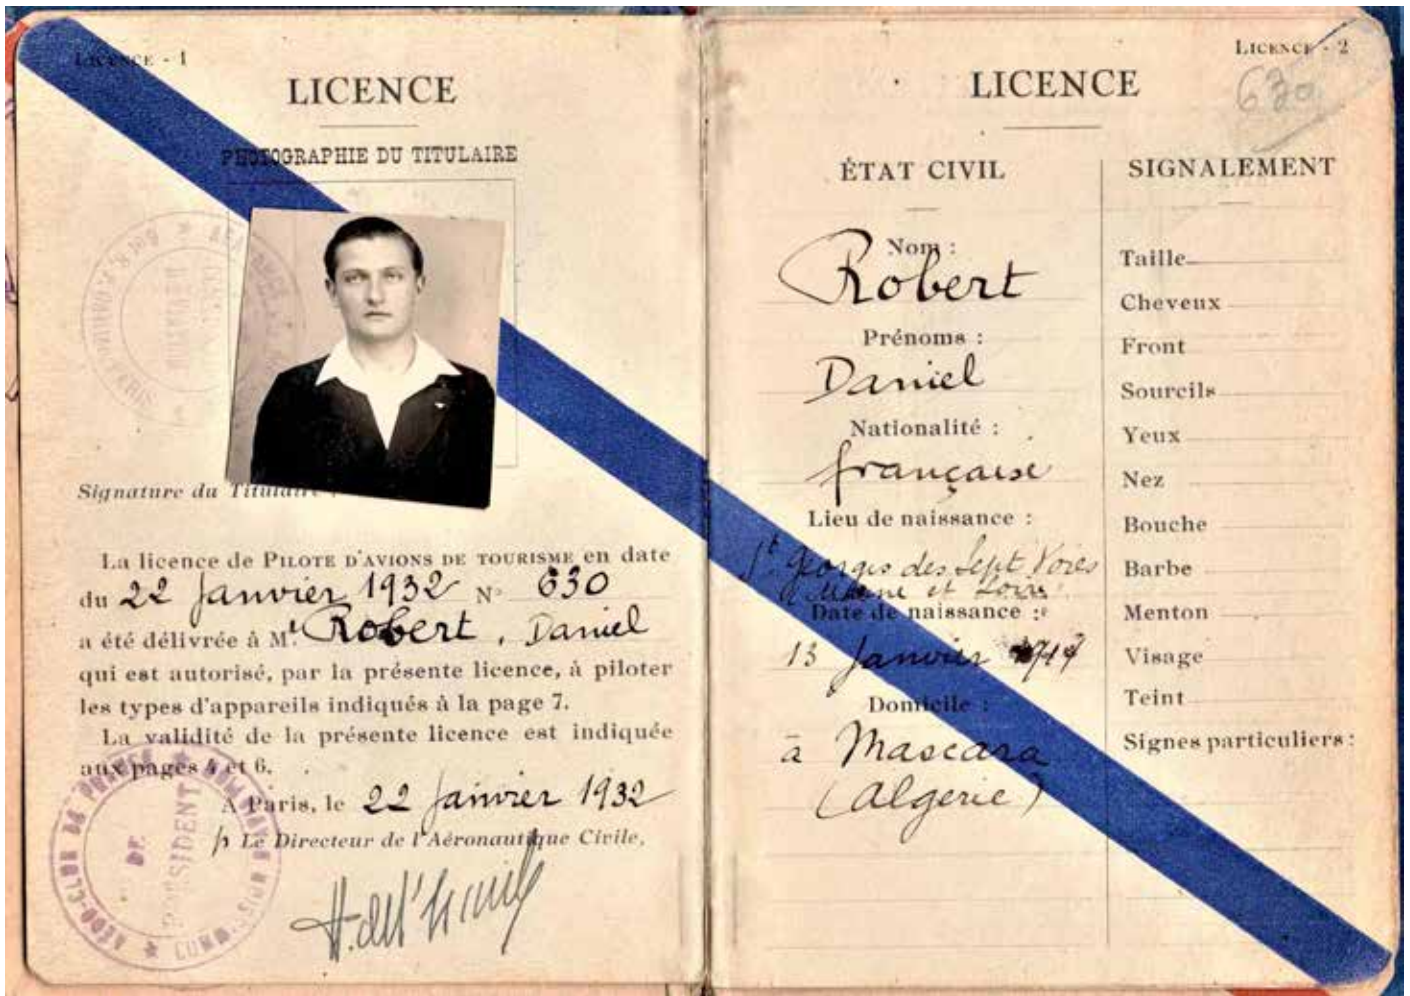 LICENCE - 1
LICENCE
PHOTOGRAPHIE DU TITULAIRE
Signature du Titulaire :
La licence de PILOTE D'AVIONS DE TOURISME en date
du 22 Janvier 1932 N° 630
a été délivrée à Mr Robert, Daniel
qui est autorisé, par la présente licence, à piloter
les types d'appareils indiqués à la page 7.
La validité de la présente licence est indiquée
aux pages 4 et 6.
A Paris, le 22 Janvier 1932
p Le Directeur de l'Aéronautique Civile,
AÉRO-CLUB DE FRANCE
PRÉSIDENT
DE
LICENCE - 2
630
LICENCE
ÉTAT CIVIL
Nom :
Robert
Prénoms :
Daniel
Nationalité :
française
Lieu de naissance :
St Georges des Sept Voies
Maine et Loire
Date de naissance :
13 Janvier
Domicile :
à Mascara
(Algérie)
SIGNALEMENT
Taille
Cheveux
Front
Sourcils
Yeux
Nez
Bouche
Barbe
Menton
Visage
Teint
Signes particuliers :